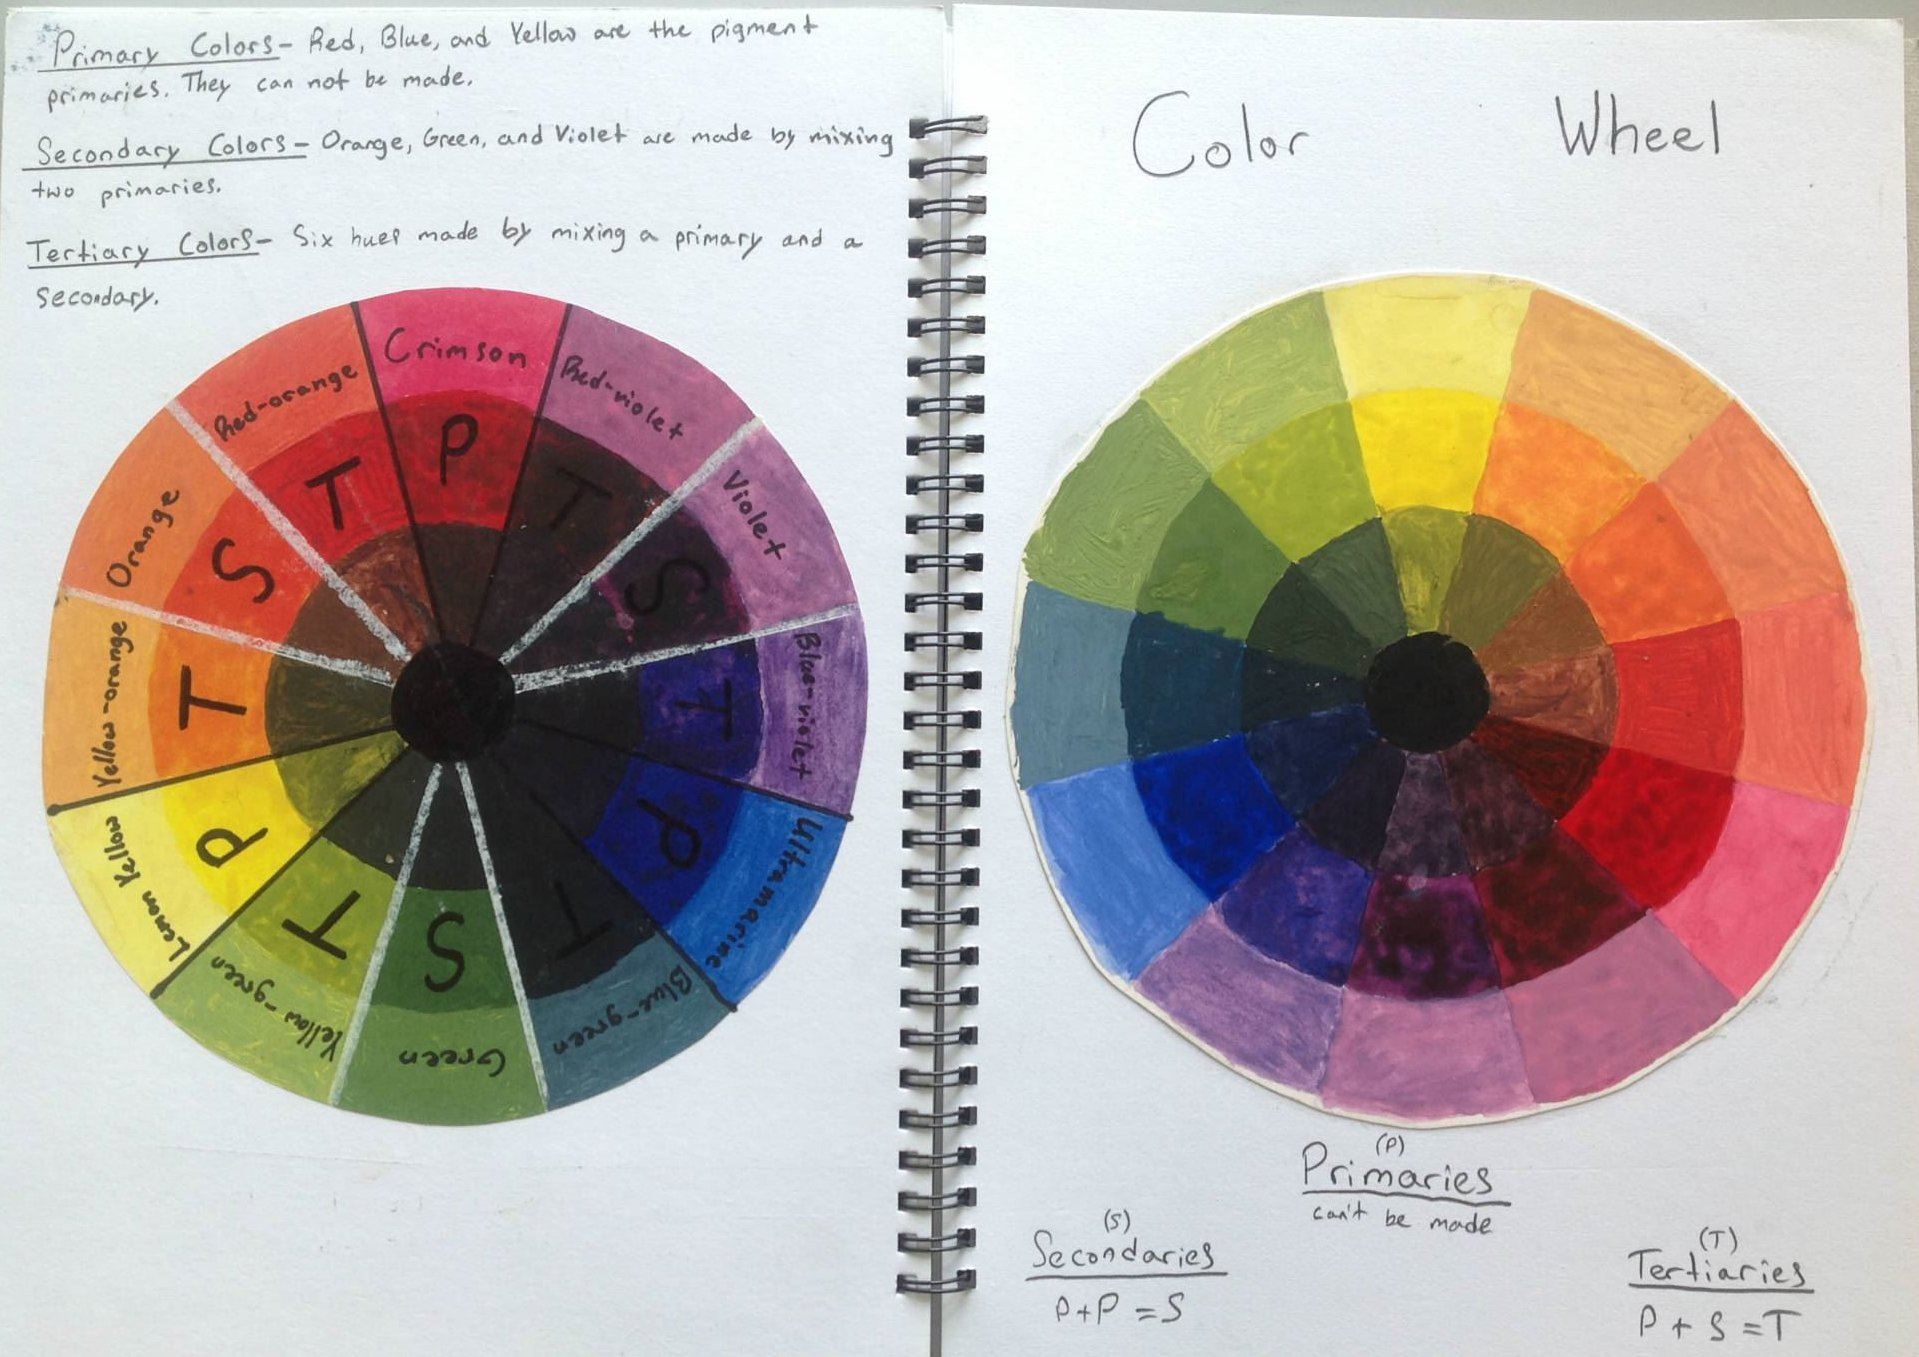 Primary Colors- Red, Blue, and Yellow are the pigment
primaries. They can not be made.
Secondary Colors- Orange, Green, and Violet are made by mixing
two primaries.
Tertiary Colors- Six hues made by mixing a primary and a
secondary.
Crimson
P
Red-violet
T
Violet
S
Blue-violet
T
Ultramarine
P
Blue-green
T
Green
S
Yellow-green
T
Lemon Yellow
P
Yellow-orange
T
Orange
S
Red-orange
T
Color Wheel
(P)
Primaries
can't be made
(S)
Secondaries
P+P=S
(T)
Tertiaries
P+S=T